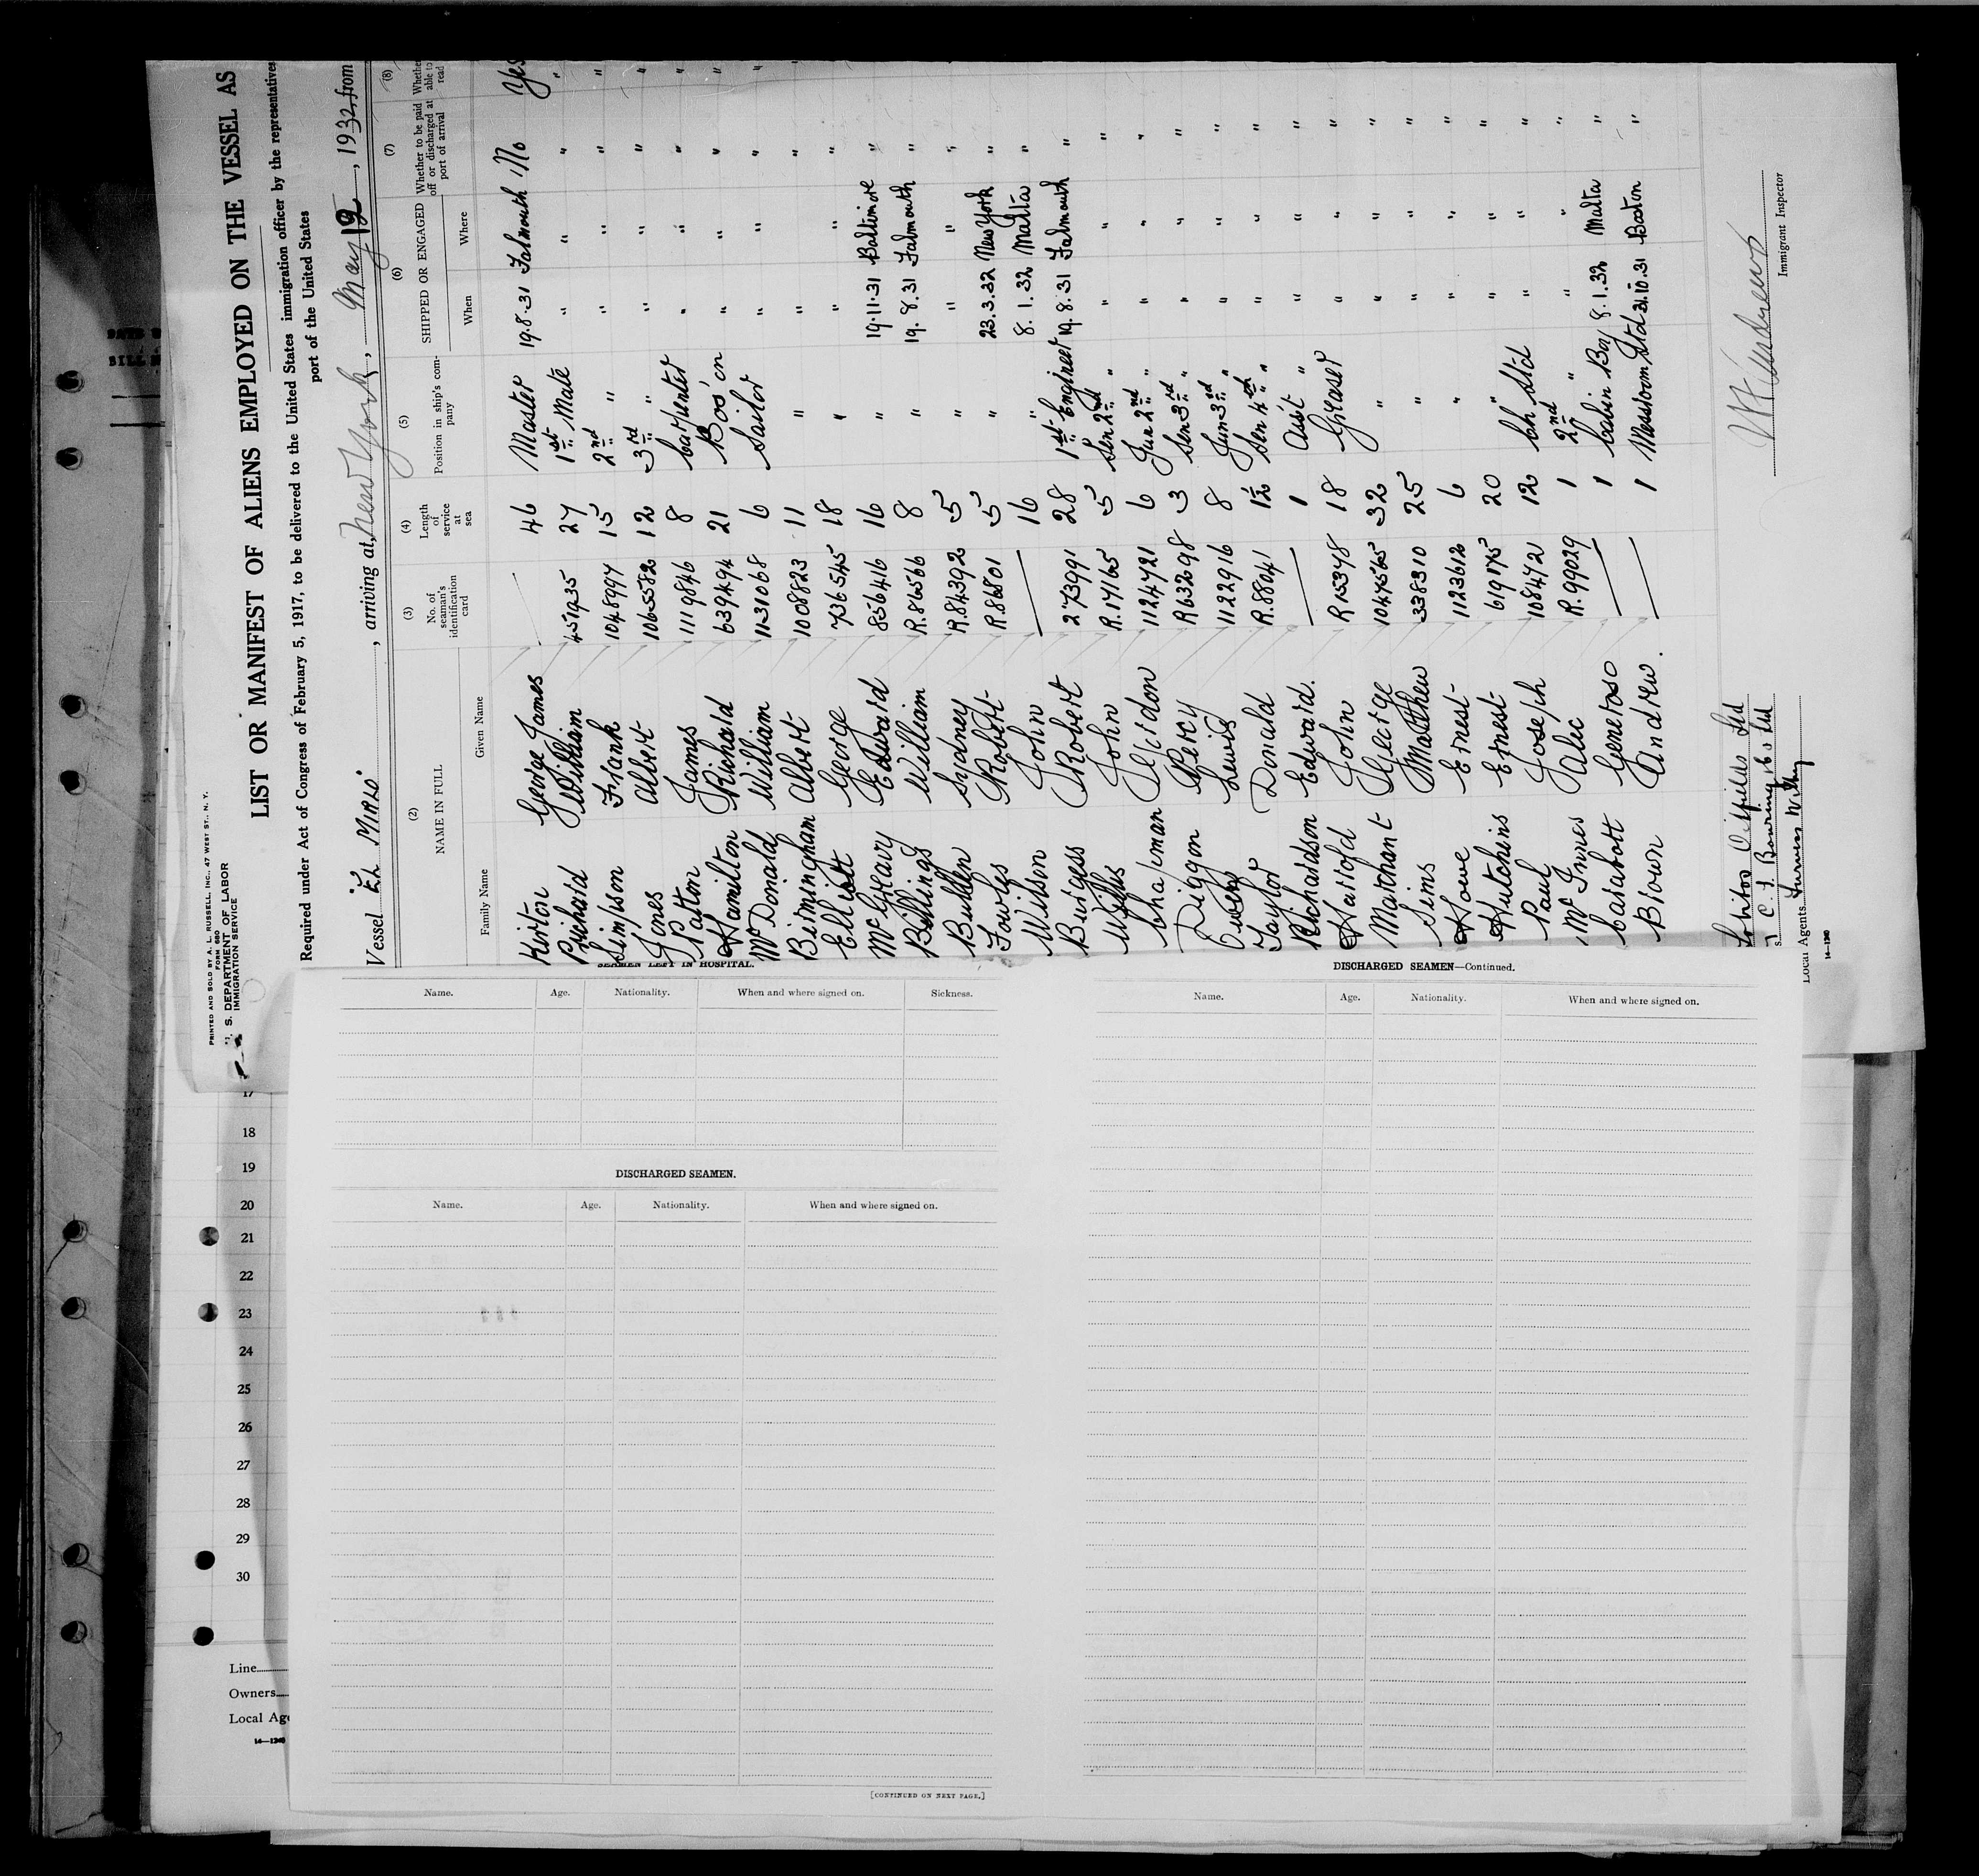 PRINTED AND SOLD BY A. L. RUSSELL, INC., 47 WEST ST., N. Y.
FORM 680
U. S. DEPARTMENT OF LABOR
IMMIGRATION SERVICE
LIST OR MANIFEST OF ALIENS EMPLOYED ON THE VESSEL AS
Required under Act of Congress of February 5, 1917, to be delivered to the United States immigration officer by the representatives
port of the United States
Vessel "El Mirlo", arriving at New York, May 12, 1932, from
(2) (3) (4) (5) (6) (7) (8)
NAME IN FULL No. of seaman's identification card Length of service at sea Position in ship's company SHIPPED OR ENGAGED Whether to be paid off or discharged at port of arrival Whether able to read
Family Name Given Name When Where
Kirton George James 46 Master 19.8.31 Falmouth No Yes
Prichard William 451935 27 1st Mate " " " "
Simpson Frank 1048997 15 2nd " " " " "
Jones Albert 1065582 12 3rd " " " " "
Patton James 1119846 8 Carpenter " " " "
Hamilton Richard 639494 21 Bos'en " " " "
McDonald William 1131068 6 Sailor " " " "
Birmingham Albert 1008823 11 " " "
Elliott George 736545 18 " " " "
McGreavy Edward 856416 16 " 19.11.31 Baltimore "
Billings William R.86566 8 " 19.8.31 Falmouth "
Budden Sidney R.84392 5 " " " "
Fowles Robert R.86801 5 " 23.3.32 New York "
Wilson John — 16 " 8.1.32 Malta "
Burgess Robert 273991 28 1st Engineer 19.8.31 Falmouth "
Willis John R.17165 5 Sen 2nd " " " "
Chapman Glindon 1124721 6 Jun 2nd " " " "
Diggon Percy R63298 3 Sen 3rd " " " "
Owens Lewis 1122916 8 Jun 3rd " " " "
Taylor Donald R.88041 1½ Sen 4th " " " "
Richardson Edward. — 1 Asst " " " "
Harrold John R15378 18 Greaser " " "
Marchant George 1047565 32 " " " "
Sims Matthew 338310 25 " " " "
Howe Ernest 1123612 6 " " " "
Hutchins Ernest 619175 20 " " " "
Paul Joseph 1084721 12 Ch Std " " "
McInnes Alec R.99029 1 2nd " " " "
Calabott Generoso — 1 Cabin Boy 8.1.32 Malta "
Brown Andrew. — 1 Messroom Std 31.10.31 Boston "
Lobitos Oilfields Ltd
C. T. Bowring & Co Ltd
Local Agents Furness Withy
14—1240
Immigrant Inspector
SEAMEN LEFT IN HOSPITAL.
Name. Age. Nationality. When and where signed on. Sickness.
DISCHARGED SEAMEN.
Name. Age. Nationality. When and where signed on.
[CONTINUED ON NEXT PAGE.]
DISCHARGED SEAMEN—Continued.
Name. Age. Nationality. When and where signed on.
17
18
19
20
21
22
23
24
25
26
27
28
29
30
Line
Owners
Local Age
14—1240